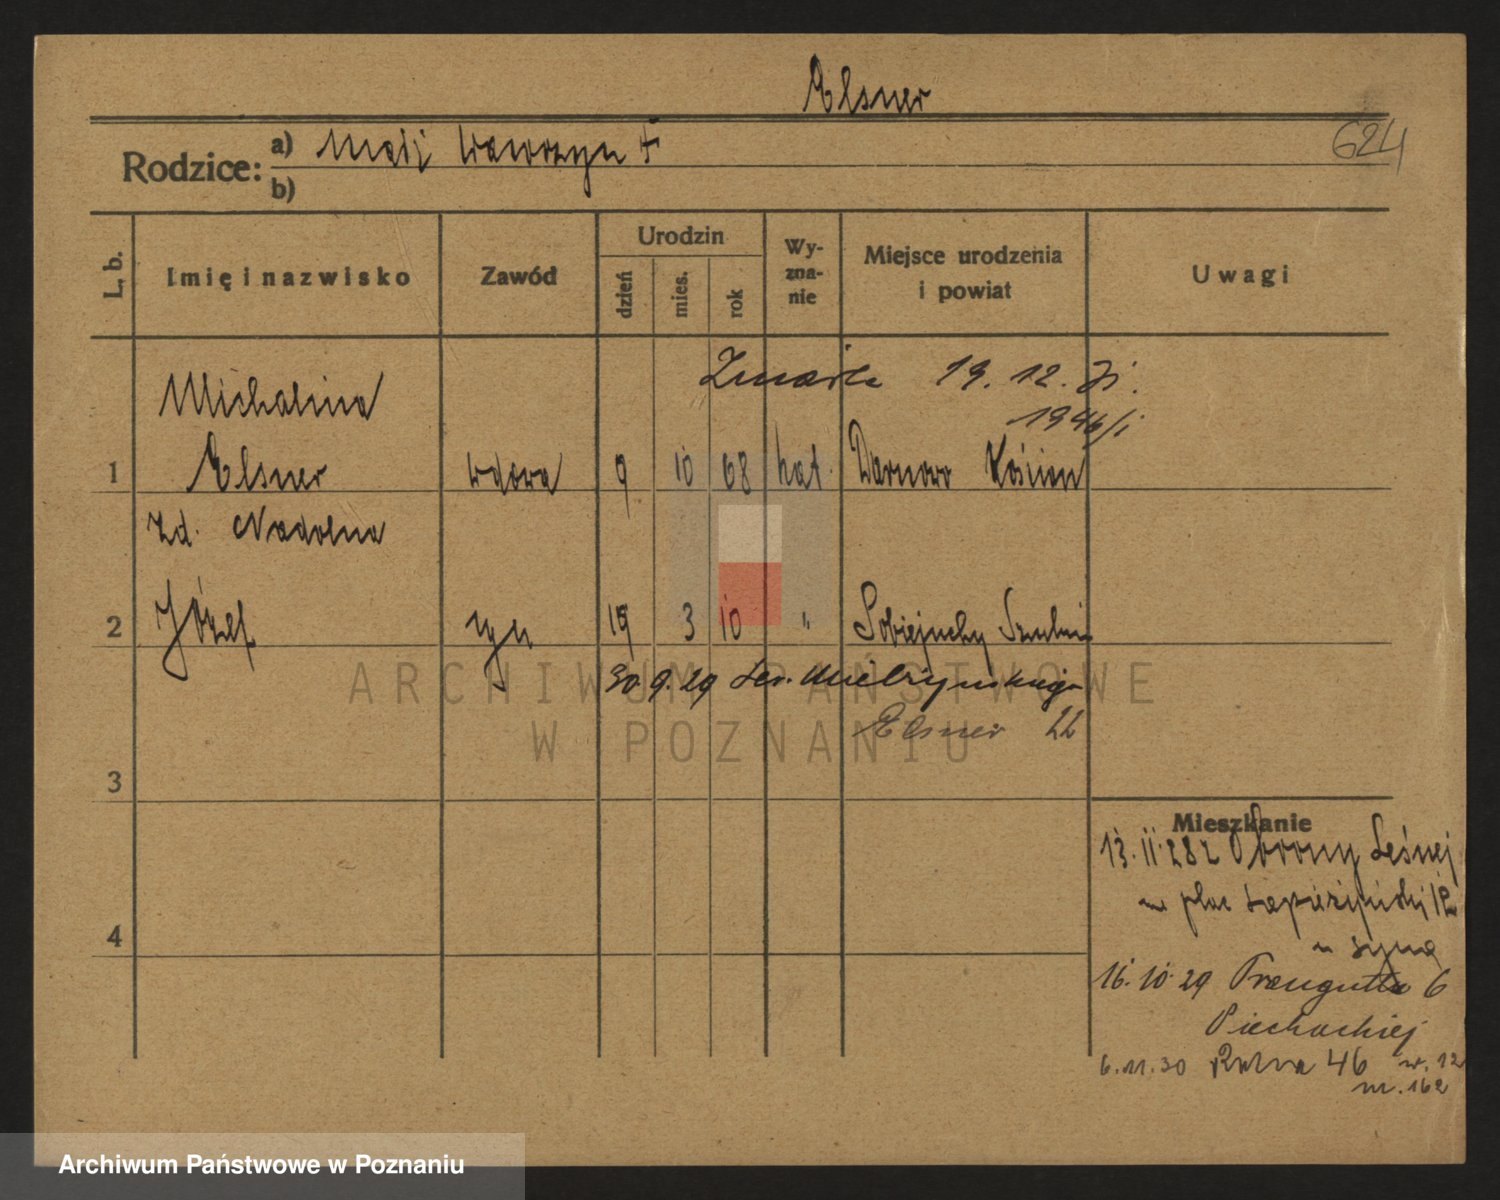 Elsner
624
Rodzice: a) Mąż Wawrzyn +
b)
L. b. Imię i nazwisko Zawód Urodzin dzień mies. rok Wy-zna-nie Miejsce urodzenia i powiat Uwagi
Zmarła 19. 12.
1946/i
Michalina
1 Elsner wdowa 9 10 68 kat. Darnowo Kościan
zd. Nadolna
2 Józef 19 3 10 " Sobiejuchy Szubin
30. 9. 29 Sew. Mielżyńskiego
Elsner 22
3
Mieszkanie
13. II. 28 z Obrony Leśnej
plac Sapieżyński
4
u syna
16. 10. 29 Traugutta 6
Piechockiej
6. 11. 30 Rolna 46 w. 12
m. 162
ARCHIWUM PAŃSTWOWE
W POZNANIU
Archiwum Państwowe w Poznaniu